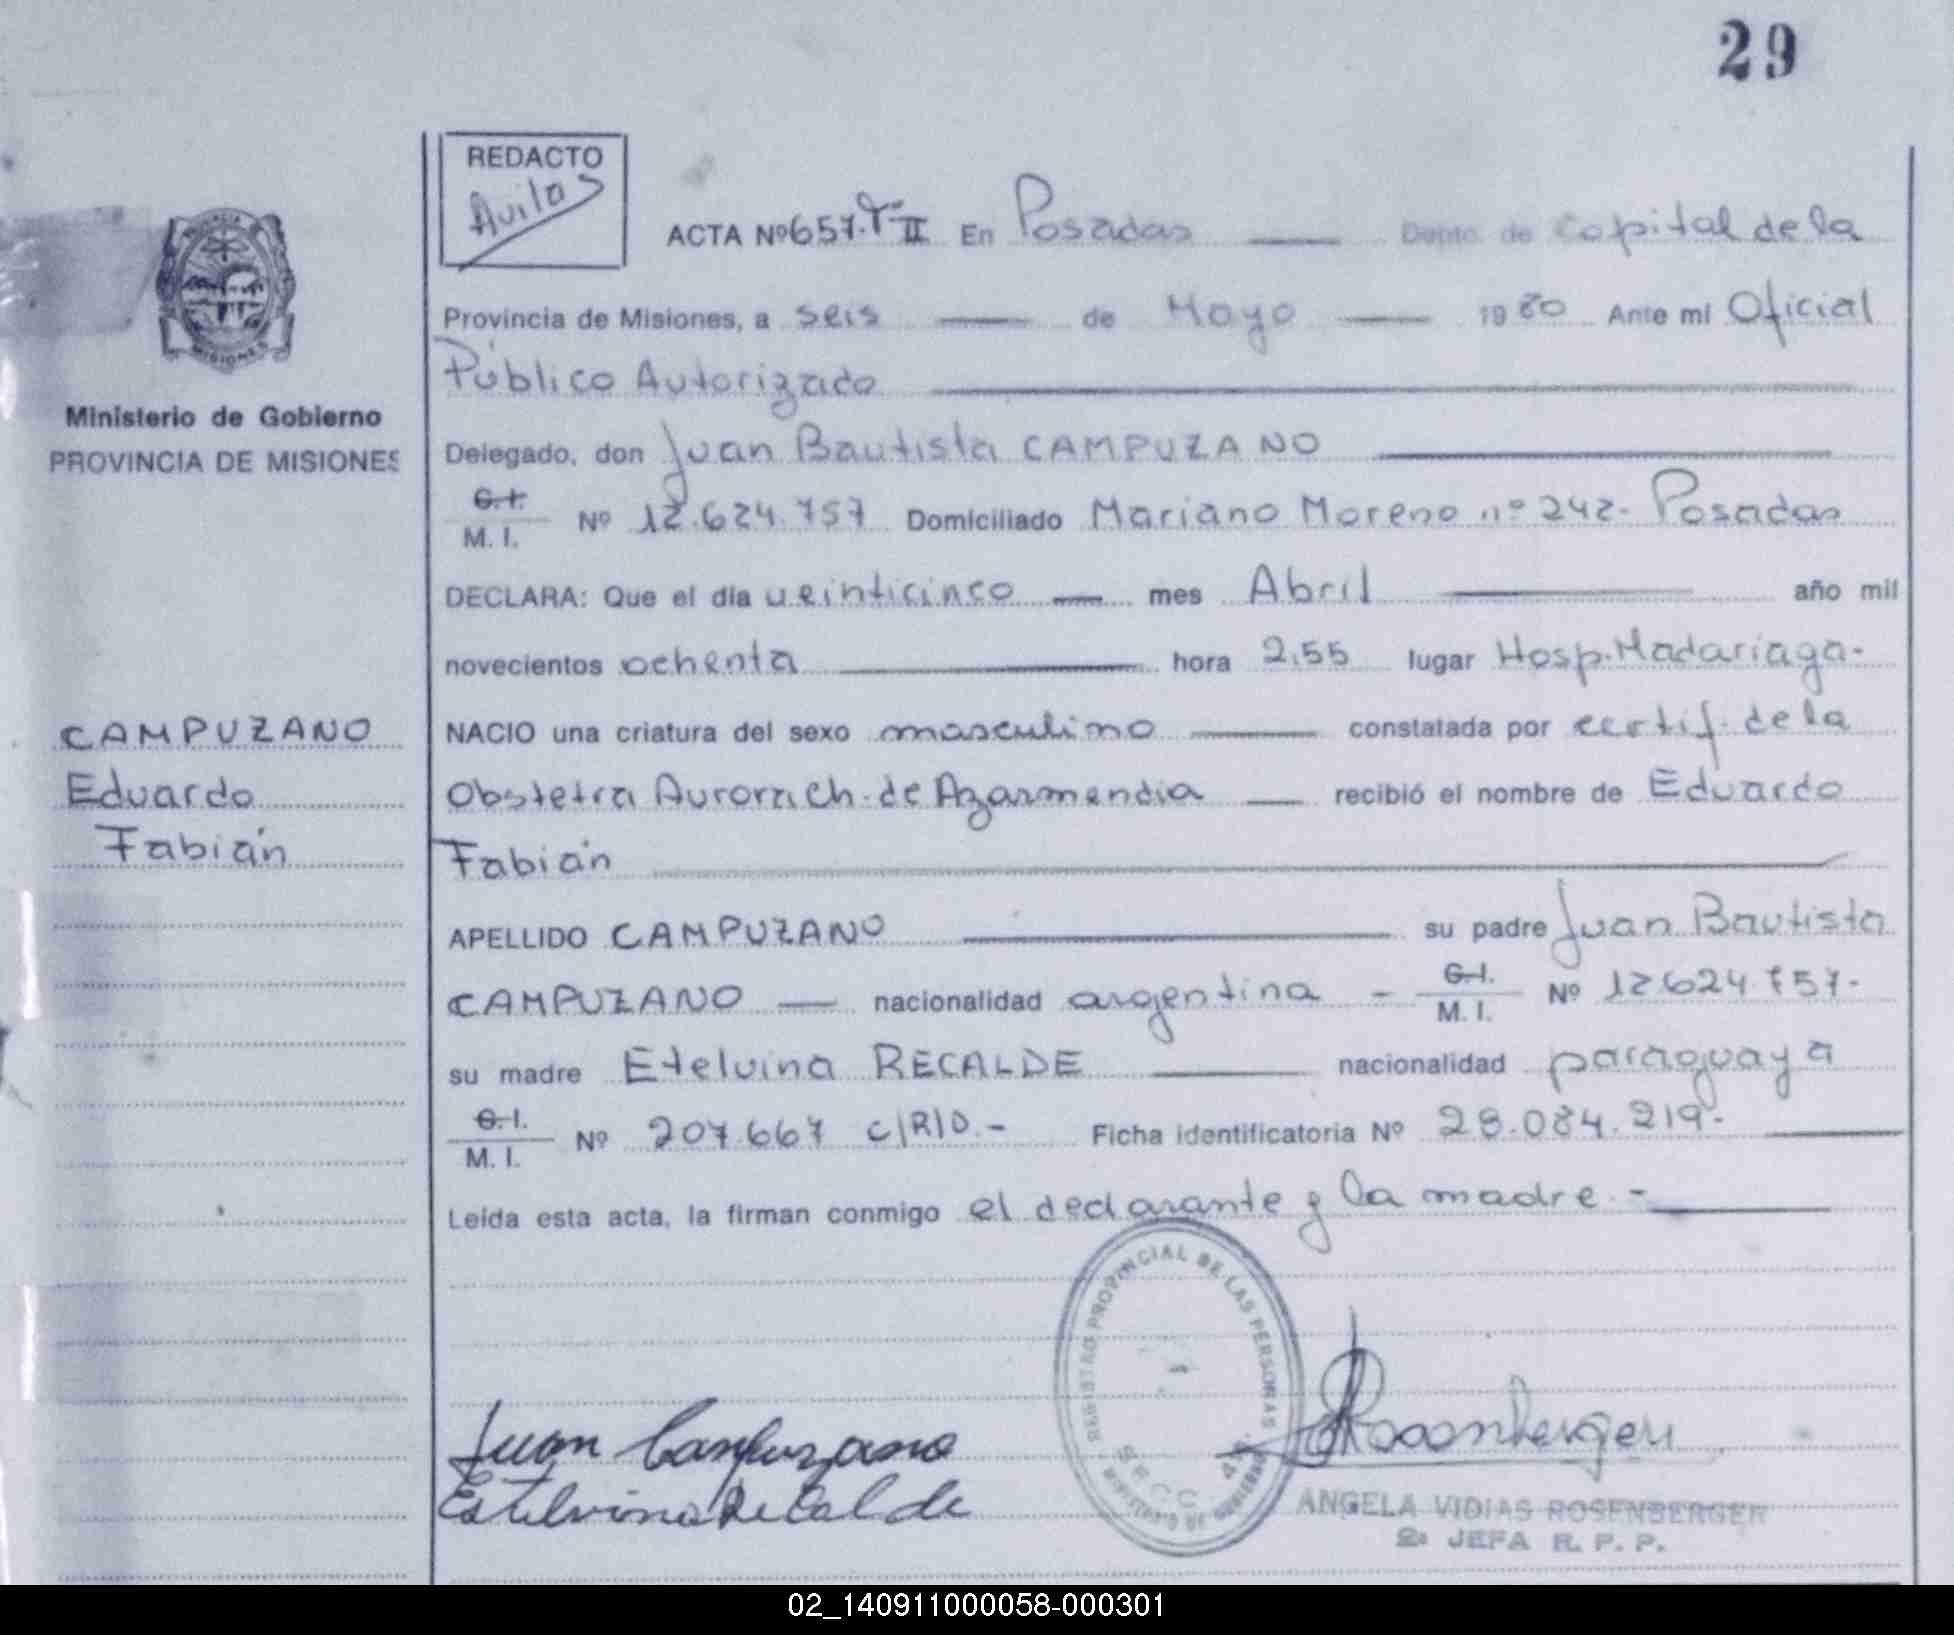 29
REDACTO
Avilos
ACTA Nº 657. Tº II En Posadas Depto. de Capital de la
Provincia de Misiones, a seis de Mayo 1980 Ante mi Oficial
Público Autorizado
Ministerio de Gobierno
PROVINCIA DE MISIONES
Delegado, don Juan Bautista CAMPUZANO
C. I.
M. I. Nº 12.624.757 Domiciliado Mariano Moreno nº 242- Posadas
DECLARA: Que el día veinticinco mes Abril año mil
novecientos ochenta hora 2,55 lugar Hosp. Madariaga-
CAMPUZANO
Eduardo
Fabián
NACIO una criatura del sexo masculino constatada por certif. de la
Obstetra Aurora Ch. de Azarmendia recibió el nombre de Eduardo
Fabián
APELLIDO CAMPUZANO su padre Juan Bautista
CAMPUZANO nacionalidad argentina - C. I.
M. I. Nº 12.624.757-
su madre Etelvina RECALDE nacionalidad paraguaya
C. I.
M. I. Nº 207.667 C/R/D.- Ficha identificatoria Nº 28.084.219-
Leída esta acta, la firman conmigo el declarante y la madre.-
REGISTRO PROVINCIAL DE LAS PERSONAS
MINISTERIO DE GOBIERNO
SECC.
Juan Campuzano
Estelvina Recalde
Rosenberger
ANGELA VIDIAS ROSENBERGER
2a JEFA R. P. P.
02_140911000058-000301